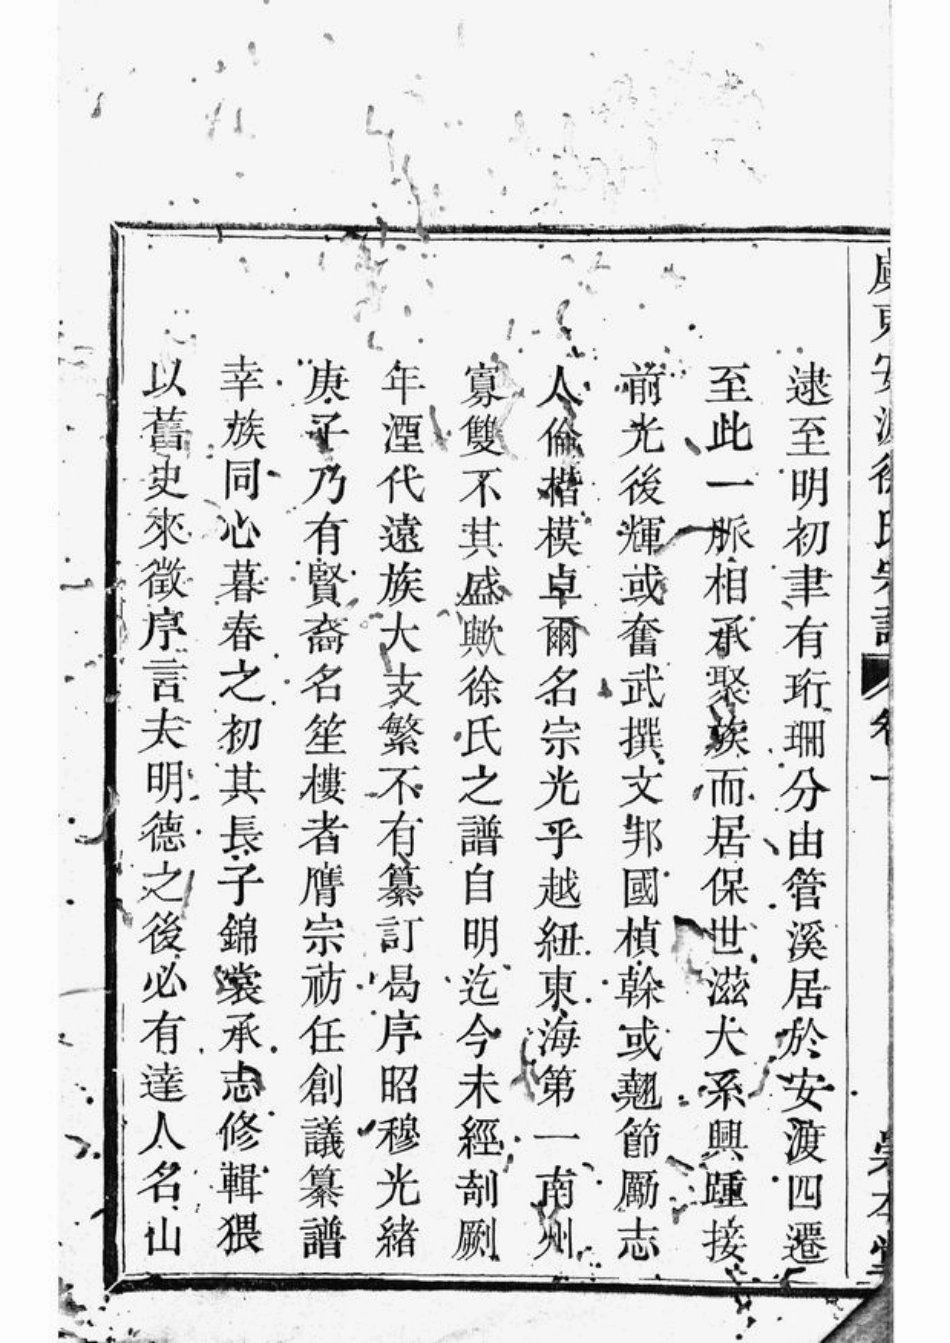 虞東安渡徐氏宗譜 卷一 崇本堂
逮至明初聿有珩珊分由管溪居於安渡四遷
至此一脈相承聚族而居保世滋大系興踵接
前光後輝或奮武撰文邦國楨榦或翹節勵志
人倫楷模卓爾名宗光乎越紐東海第一南州
寡雙不其盛歟徐氏之譜自明迄今未經剞劂
年湮代遠族大支繁不有纂訂曷序昭穆光緒
庚子乃有賢裔名笙樓者膺宗祊任創議纂譜
幸族同心暮春之初其長子錦裳承志修輯猥
以舊史來徵序言夫明德之後必有達人名山